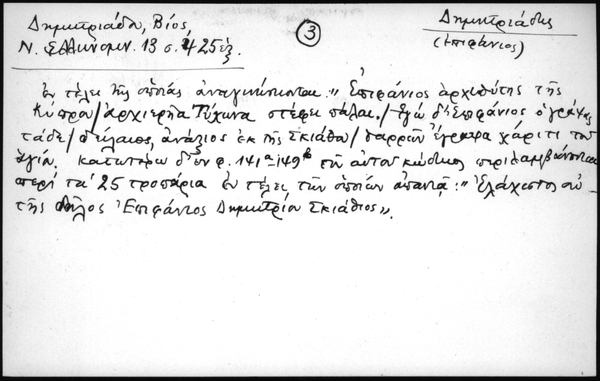 Δημητριάδα, Βίος,
Ν. Ἑλληνομν. 13 σ. 425 ἑξ.
3
Δημητριάδης
(Ἐπιφάνιος)
Ἐν τέλει τῆς ὁποίας ἀναγινώσκονται: "Ἐπιφάνιος ἀρχιθύτης τῆς
Κύπρου/ἀρχιερῆα Τύχωνα στέφει πάλαι./Ἐγώ δ' Ἐπιφάνιος ὁ γράψας
τάδε/δείλαιος, ἀνάξιος ἐκ τῆς Σκιάθου/θαρρῶν ἔγραψα χάριτι τοῦ
ἁγίου. Κατωτέρω δ' ἐν φ. 141α-149β τοῦ αὐτοῦ κώδικος περιλαμβάνονται
περί τά 25 τροπάρια ἐν τέλει τῶν ὁποίων ἀπαντᾶ: "Ἐλάχιστος οὐ-
τῆς δῆλος Ἐπιφάνιος Δημητρίου Σκιάθιος".